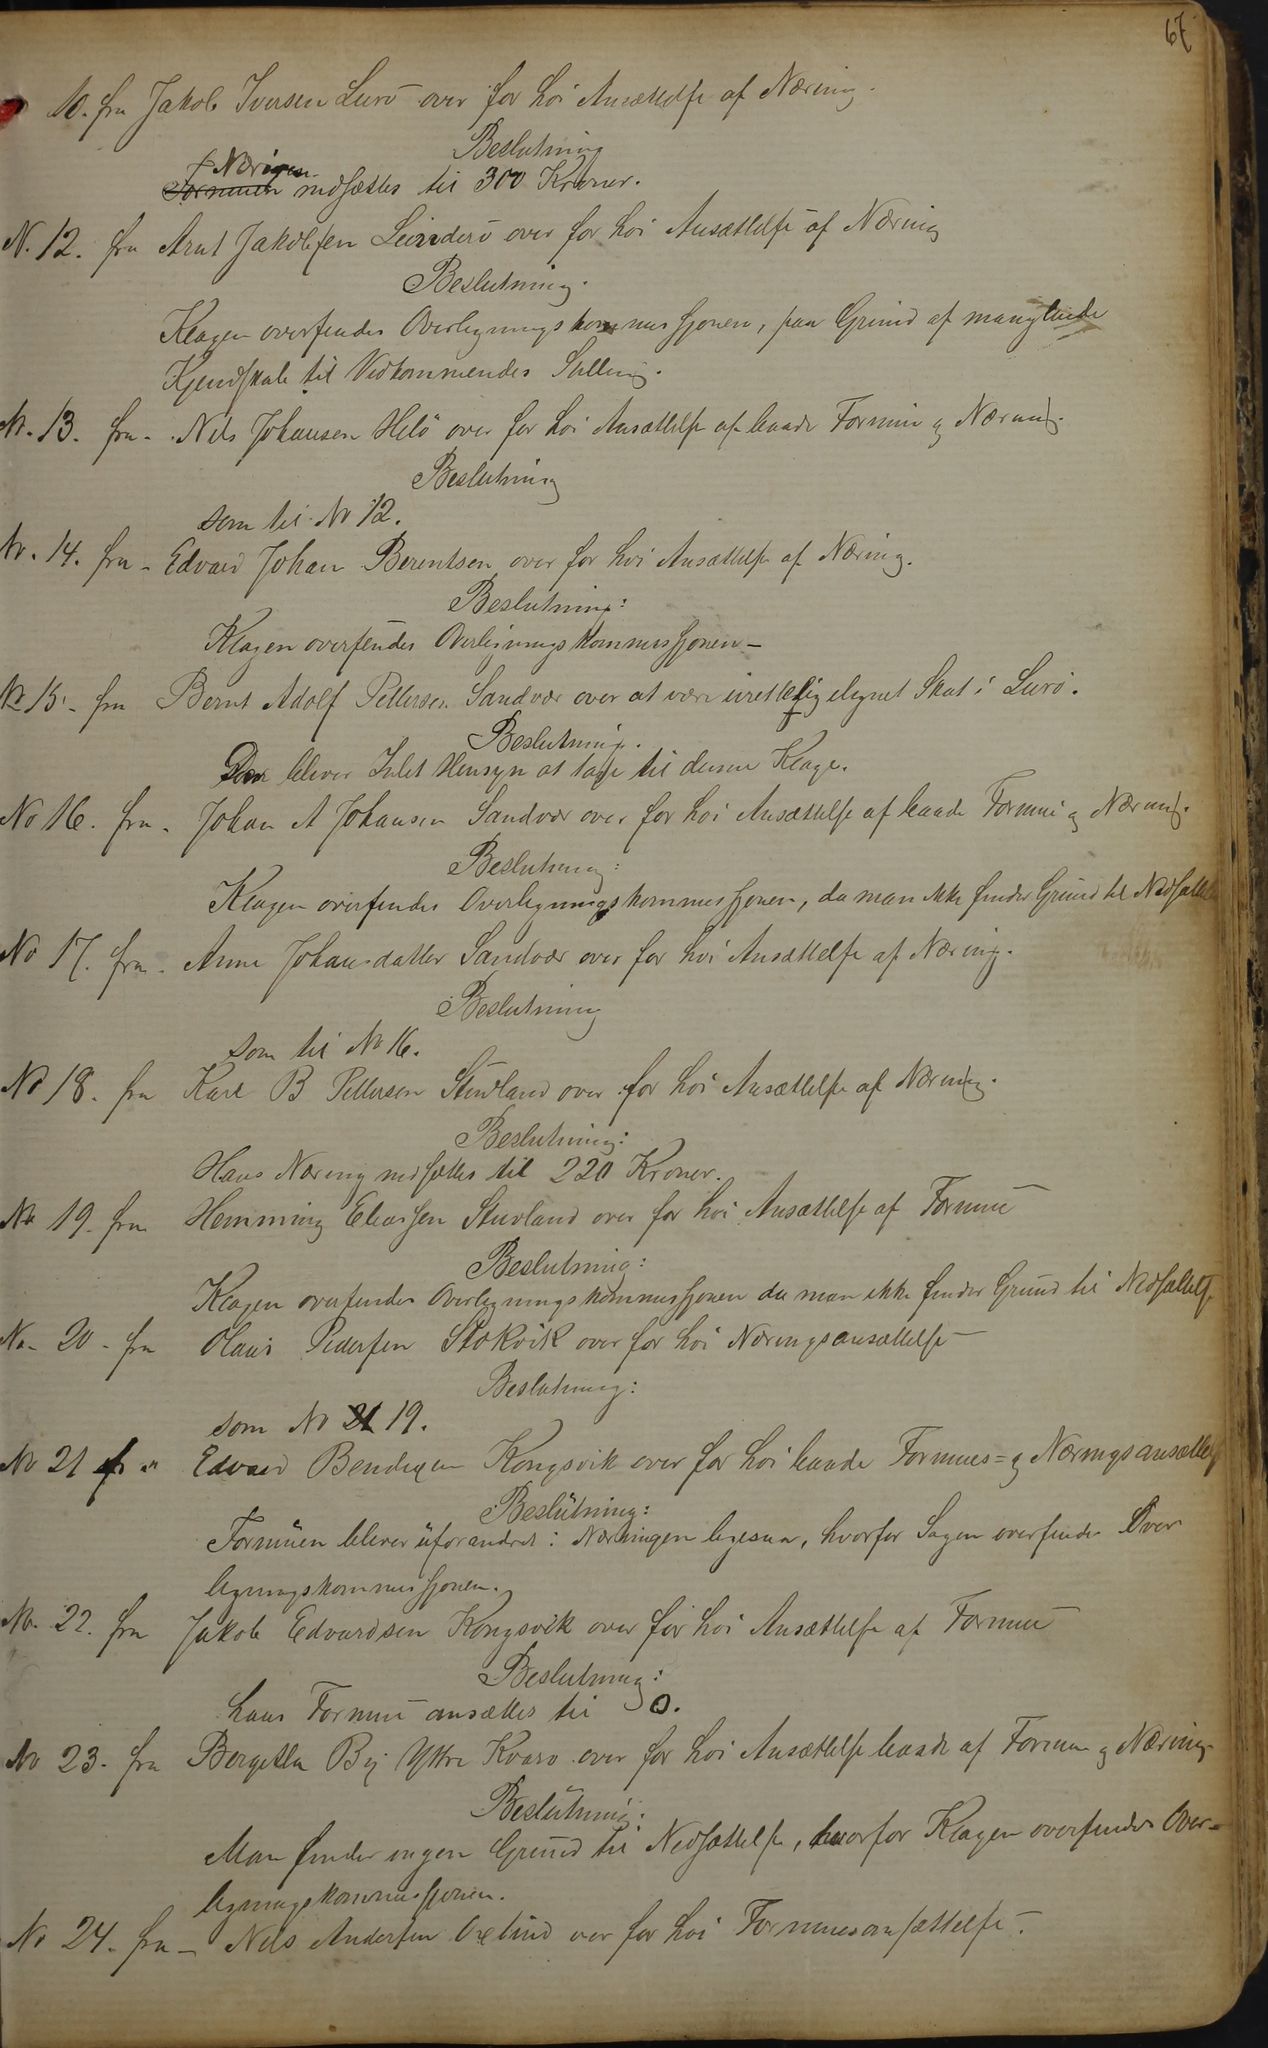 67
10. fra Jakob Iversen Lurö over for høi Ansættelse af Næring.
Beslutning
Næringen
Formuen nedsættes til 300 Kroner.
N. 12. fra Arnt Jakobsen over for høi Ansættelse af Næring
Beslutning.
Klagen oversendes Overligningskommissjonen, paa Grund af manglende
Kjendskab til Vedkommendes Stilling.
N. 13. fra - Nils Johansen Helö over for høi Ansættelse af baade Formue og Næring.
Beslutning
som til No 12.
No. 14. fra - Edvard Johan Berentsen over for høi Ansættelse af Næring.
Beslutning:
Klagen oversendes Overligningskommissjonen -
No 15. fra Bernt Adolf Pettersen Sandvær over at være urettelig ilignet Skat i Lurö.
Beslutning.
Der bliver Intet Hensyn at tage til denne Klage.
No 16. fra - Johan A Johansen Sandvær over for høi Ansættelse af baade Formue og Næring.
Beslutning:
Klagen oversendes Overligningskommissjonen, da man ikke finder Grund til Nedsættelse
No 17. fra - Anne Johansdatter Sandvær over for høi Ansættelse af Næring.
Beslutning
som til No 16.
No 18. fra Karl B Pettersen Stuvland over for høi Ansættelse af Næring.
Beslutning:
Hans Næring nedsættes til 220 Kroner.
No 19. fra Hemming Eliassen Stuvland over for høi Ansættelse af Formue
Beslutning:
Klagen oversendes Overligningskommissjonen da man ikke finder Grund til Nedsættelse
No - 20 - fra Olaus Pedersen Stokvik over for høi Næringsansættelse
Beslutning:
som No 21 19.
No 21 fr " Edvard Bendixen Kongsvik over for høi baade Formues= og Næringsansættelse
Beslutning:
Formuen bliver uforandret: Næringen ligesaa, hvorfor Sagen oversendes Over
ligningskommissjonen.
No. 22. fra Jakob Edvardsen Kongsvik over for høi Ansættelse af Formue
Beslutning:
hans Formue ansættes til 0.
No 23. fra Bergitha Bij Ytre Kvarø over for høi Ansættelse baade af Formue og Næring
Beslutning:
Man finder ingen Grund til Nedsættelse, hvorfor Klagen oversendes Over-
ligningskommissjonen.
No 24. fra - Nils Andersen over for høi Formuesansættelse.